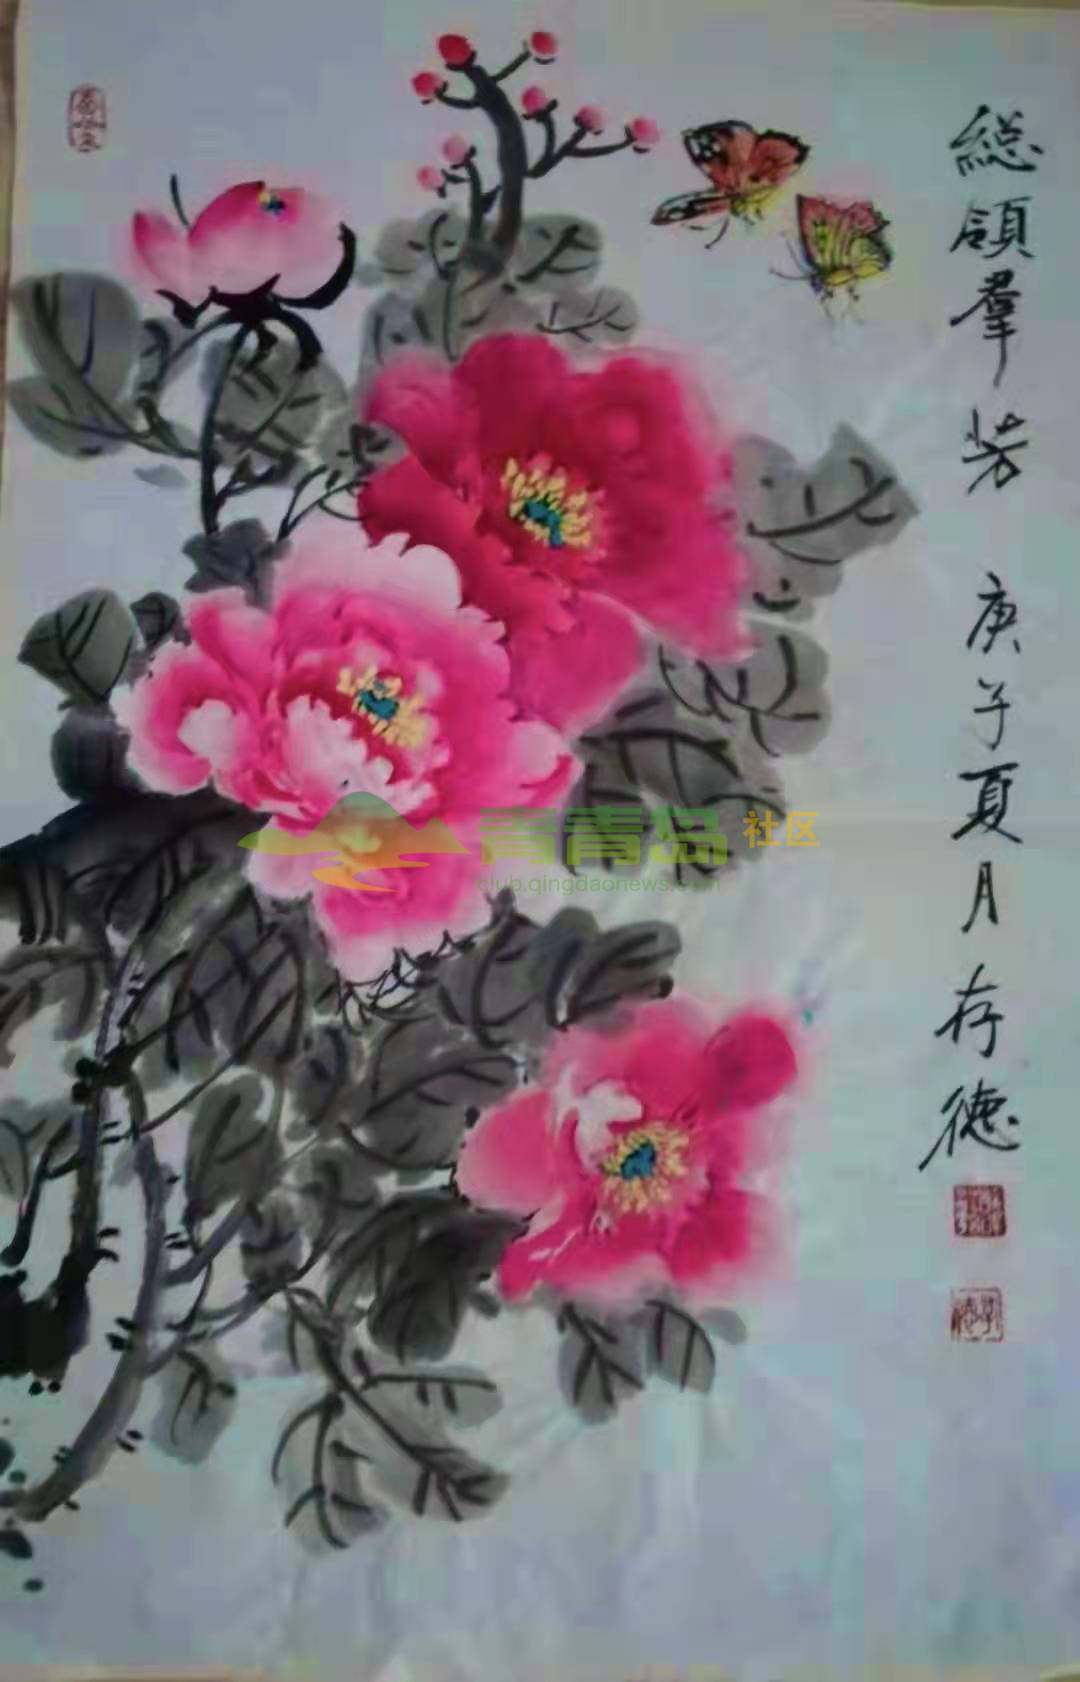 総領羣芳 庚子夏月存德
青青岛社区
club.qingdaonews.com